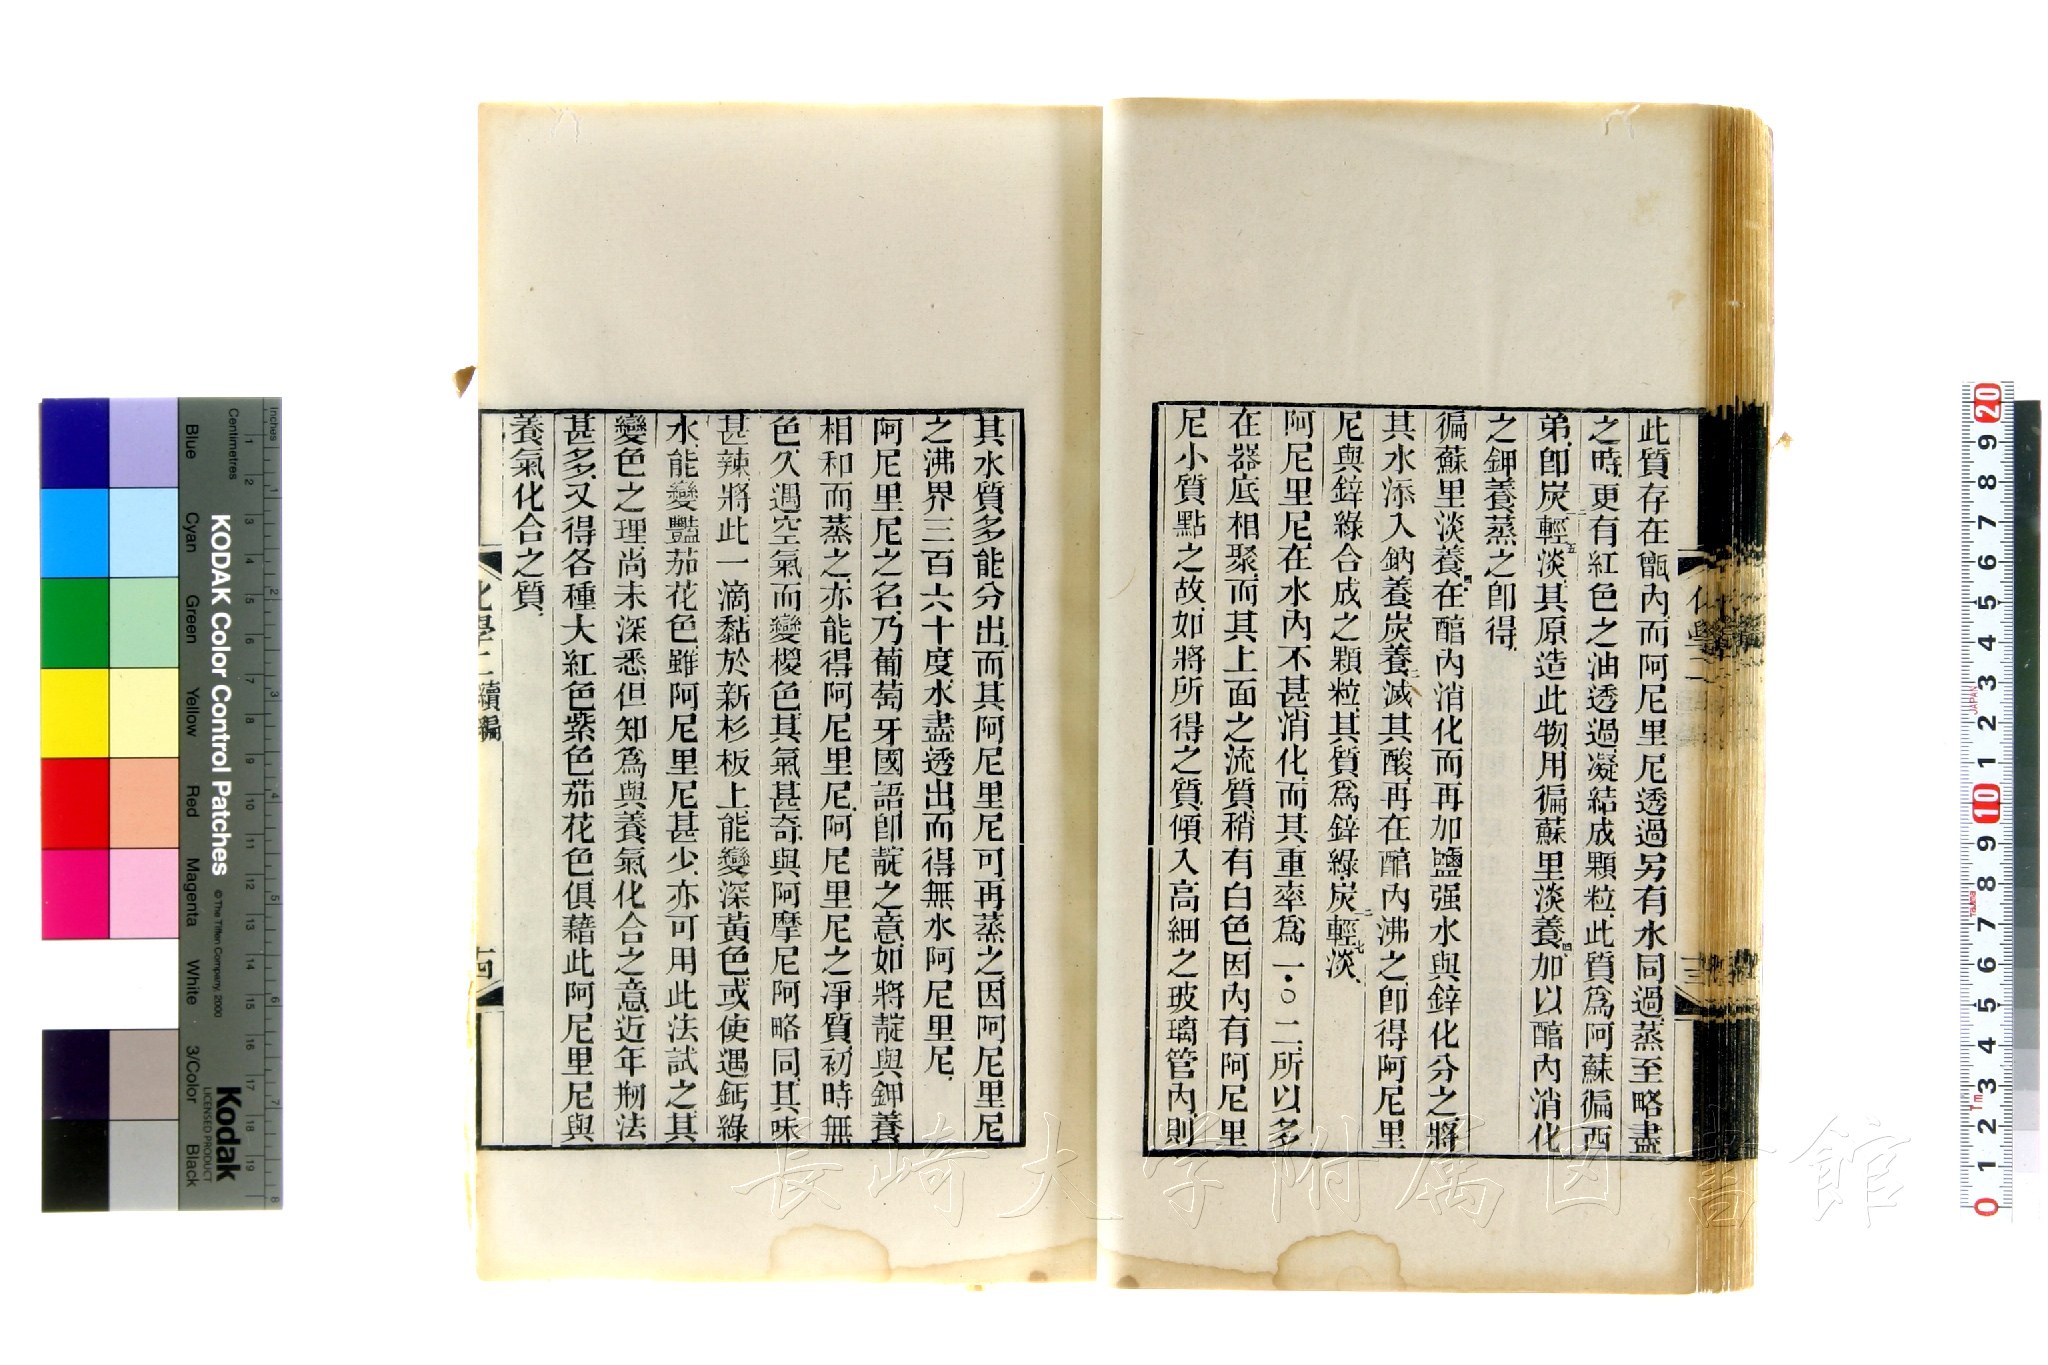 此質存在甑內而阿尼里尼透過另有水同過蒸至略盡
之時更有紅色之油透過凝結成顆粒此質爲阿蘇徧西
弟卽炭輕淡其原造此物用徧蘇里淡養加以醕內消化
之鉀養蒸之卽得
徧蘇里淡養在醕內消化而再加鹽强水與鋅化分之將
其水添入鈉養炭養滅其酸再在醕內沸之卽得阿尼里
尼與鋅綠合成之顆粒其質爲鋅綠炭輕淡
阿尼里尼在水內不甚消化而其重率爲一·〇二所以多
在器底相聚而其上面之流質稍有白色因內有阿尼里
尼小質點之故如將所得之質傾入高細之玻璃管內則
其水質多能分出而其阿尼里尼可再蒸之因阿尼里尼
之沸界三百六十度水盡透出而得無水阿尼里尼
阿尼里尼之名乃葡萄牙國語卽靛之意如將靛與鉀養
相和而蒸之亦能得阿尼里尼阿尼里尼之淨質初時無
色久遇空氣而變椶色其氣甚奇與阿摩尼阿略同其味
甚辣將此一滴黏於新杉板上能變深黃色或使遇鈣綠
水能變豔茄花色雖阿尼里尼甚少亦可用此法試之其
變色之理尚未深悉但知爲與養氣化合之意近年剏法
甚多又得各種大紅色紫色茄花色俱藉此阿尼里尼與
養氣化合之質
化學二 續編
十四
KODAK Color Control Patches
© The Tiffen Company, 2000
Kodak
LICENSED PRODUCT
Inches
Centimetres
Blue
Cyan
Green
Yellow
Red
Magenta
White
3/Color
Black
長崎大学附属図書館